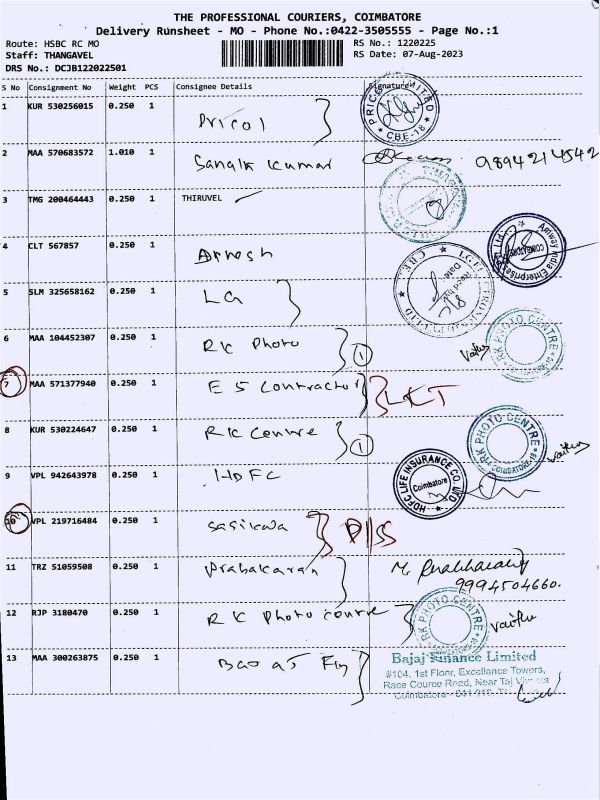 THE PROFESSIONAL COURIERS, COIMBATORE
Delivery Runsheet - MO - Phone No.:0422-3505555 - Page No.:1
Route: HSBC RC MO RS No.: 1220225
Staff: THANGAVEL RS Date: 07-Aug-2023
DRS No.: DCJB122022501
S No Consignment No Weight PCS Consignee Details Signature
1 KUR 530256015 0.250 1 Pricol
CBE-18
2 MAA 570683572 1.010 1 Kumar 9894214542
3 TMG 200464443 0.250 1 THIRUVEL
4 CLT 567857 0.250 1
Amway India Enterprises Pvt Ltd.
5 SLM 325658162 0.250 1 LG
6 MAA 104452307 0.250 1 RK Photo 1
RK PHOTO CENTRE
7 MAA 571377940 0.250 1 E S Contractor
8 KUR 530224647 0.250 1 RK Centre 1
RK PHOTO CENTRE
COIMBATORE-18
9 VPL 942643978 0.250 1 HDFC
HDFC LIFE INSURANCE CO. LTD
Coimbatore
10 VPL 219716484 0.250 1 D/S
11 TRZ 51059508 0.250 1 Prabakaran
9994504660.
12 RJP 3180470 0.250 1 RK Photo centre
RK PHOTO CENTRE
13 MAA 300263875 0.250 1
Bajaj Finance Limited
#104, 1st Floor, Excellance Towers,
Race Cource Road, Near Taj Vivanta
Coimbatore